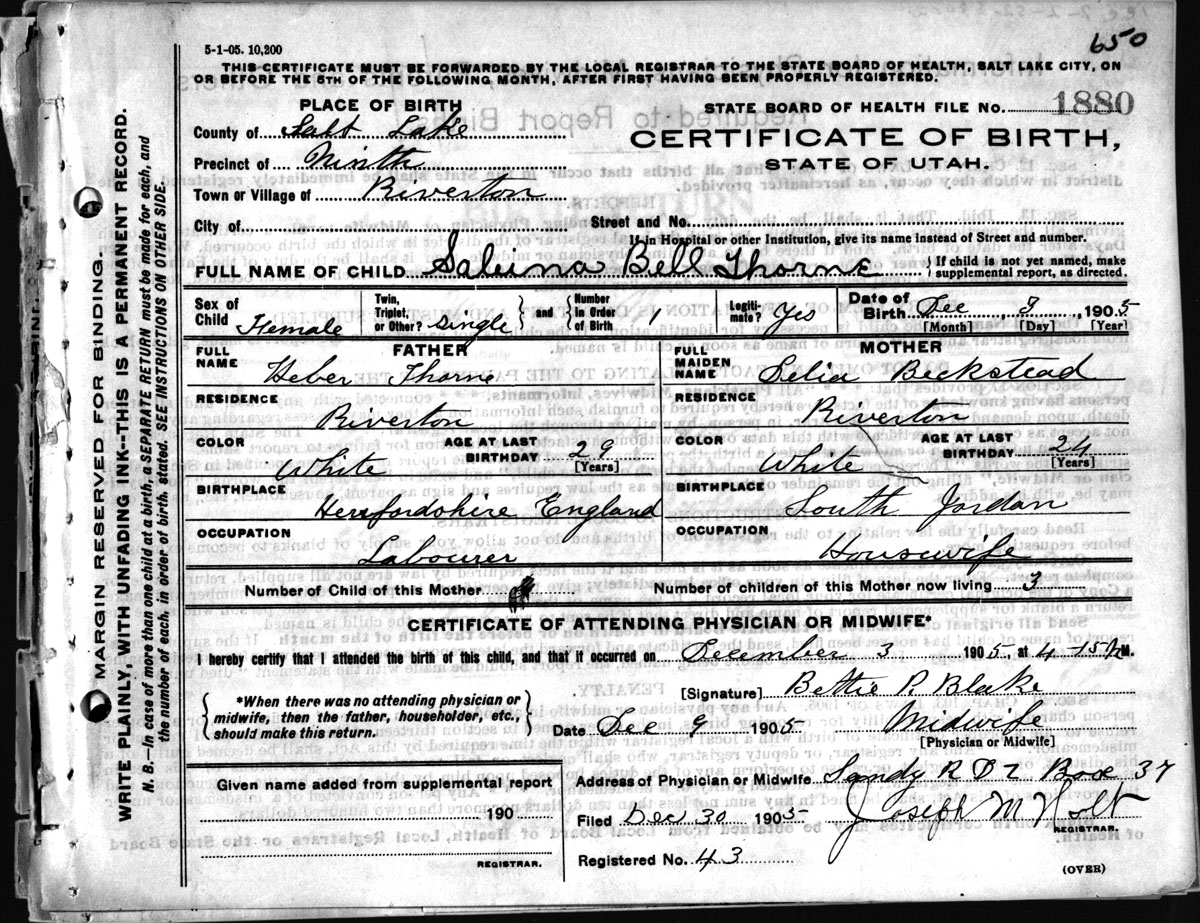 650
5-1-05. 10,200
THIS CERTIFICATE MUST BE FORWARDED BY THE LOCAL REGISTRAR TO THE STATE BOARD OF HEALTH, SALT LAKE CITY, ON
OR BEFORE THE 5TH OF THE FOLLOWING MONTH, AFTER FIRST HAVING BEEN PROPERLY REGISTERED.
PLACE OF BIRTH
STATE BOARD OF HEALTH FILE NO. 1880
County of Salt Lake
CERTIFICATE OF BIRTH,
Precinct of Ninth
STATE OF UTAH.
Town or Village of Riverton
City of Street and No.
If in Hospital or other Institution, give its name instead of Street and number.
FULL NAME OF CHILD Bell Thorne { If child is not yet named, make
supplemental report, as directed.
Sex of Child Female Twin, Triplet, or Other? single } and { Number in Order of Birth Legiti-mate? Yes Date of Birth Dec 3 1905
[Month] [Day] [Year]
FATHER MOTHER
FULL NAME Heber Thorne FULL MAIDEN NAME Delia Beckstead
RESIDENCE RESIDENCE
Riverton Riverton
COLOR AGE AT LAST BIRTHDAY 29 COLOR AGE AT LAST BIRTHDAY 24
White [Years] White [Years]
BIRTHPLACE BIRTHPLACE
England South Jordan
OCCUPATION OCCUPATION
Labourer Housewife
Number of Child of this Mother Number of children of this Mother now living 3
CERTIFICATE OF ATTENDING PHYSICIAN OR MIDWIFE*
I hereby certify that I attended the birth of this child, and that it occurred on December 3 1905, at 4-15 M.
{ *When there was no attending physician or
midwife, then the father, householder, etc.,
should make this return. }
[Signature] Bettie P. Blake
Date Dec 9 1905 Midwife
[Physician or Midwife]
Given name added from supplemental report
190
REGISTRAR.
Address of Physician or Midwife Sandy R D 2 Box 37
Filed Dec 30 1905 Joseph M Holt
REGISTRAR.
Registered No. 43
(OVER)
MARGIN RESERVED FOR BINDING.
WRITE PLAINLY, WITH UNFADING INK--THIS IS A PERMANENT RECORD.
N. B.--In case of more than one child at a birth, a SEPARATE RETURN must be made for each, and
the number of each, in order of birth, stated. SEE INSTRUCTIONS ON OTHER SIDE.